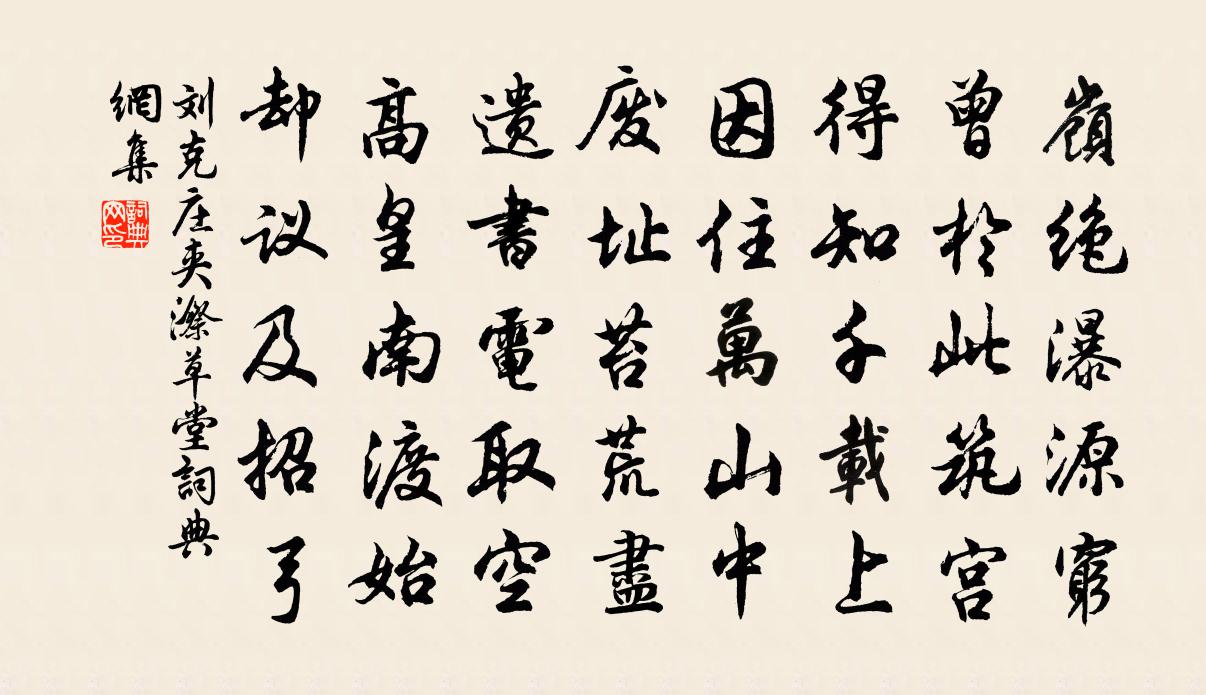 嶺绝瀑源窮
曾於此筑宫
得知千載上
因住萬山中
废址苔荒盡
遗書電取空
髙皇南渡始
却议及招弓
刘克庄夾漈草堂詞典
網集
詞典
网印